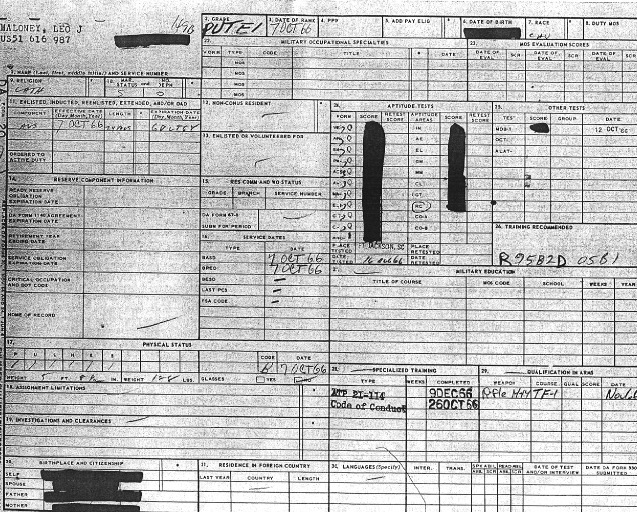 MALONEY, LEO J
US51 616 987
2. GRADE
PVT E1
3. DATE OF RANK
7 OCT 66
4. PPN
5. ADD PAY ELIG
6. DATE OF BIRTH
7. RACE
CAU
8. DUTY MOS
22. MILITARY OCCUPATIONAL SPECIALTIES
FORM TYPE CODE TITLE DATE
MOS
MOS
MOS
MOS
23. MOS EVALUATION SCORES
DATE OF EVAL SCR DATE OF EVAL SCR DATE OF EVAL SCR
1. NAME (Last, first, middle initial) AND SERVICE NUMBER
9. RELIGION
CATH
10. MAR STATUS NO. DEPN
S 0
11. ENLISTED, INDUCTED, REENLISTED, EXTENDED, AND/OR OAD
COMPONENT EFFECTIVE DATE (Day, Month, Year) LENGTH EXPIRATION DATE (Day, Month, Year)
AUS 7 OCT 66
ORDERED TO ACTIVE DUTY
12. NON-CONUS RESIDENT
13. ENLISTED OR VOLUNTEERED FOR
24. APTITUDE TESTS
FORM SCORE RETEST SCORE APTITUDE AREAS SCORE RETEST SCORE
IN
AE
EL
GM
MM
CL
GT
RC
CO-A
CO-B
PLACE TESTED FT JACKSON, SC PLACE RETESTED
DATE TESTED DATE RETESTED
25. OTHER TESTS
TEST SCORE GROUP DATE
12 OCT 66
OCT-
ALAT-
26. TRAINING RECOMMENDED
14. RESERVE COMPONENT INFORMATION
READY RESERVE OBLIGATION EXPIRATION DATE
DA FORM 1140 AGREEMENT EXPIRATION DATE
RETIREMENT YEAR ENDING DATE
SERVICE OBLIGATION EXPIRATION DATE
CRITICAL OCCUPATION AND DOT CODE
HOME OF RECORD
15. RES COMM AND WO STATUS
GRADE BRANCH SERVICE NUMBER
DA FORM 47-8 SUBM FOR PERIOD
16. SERVICE DATES
TYPE DATE
BASD 7 OCT 66
BPED 7 OCT 66
BESD
LAST PCS
FSA CODE
27. MILITARY EDUCATION
TITLE OF COURSE MOS CODE SCHOOL WEEKS YEAR
17. PHYSICAL STATUS
P U L H E S CODE DATE
A 7 OCT 66
HEIGHT FT. IN. WEIGHT LBS. GLASSES YES NO
18. ASSIGNMENT LIMITATIONS
19. INVESTIGATIONS AND CLEARANCES
28. SPECIALIZED TRAINING
TYPE WEEKS COMPLETED
ATP 21-114 9DEC66
Code of Conduct 26OCT66
29. QUALIFICATION IN ARMS
WEAPON COURSE QUAL SCORE DATE
Rifle M14 TF-1
20. BIRTHPLACE AND CITIZENSHIP
SELF
SPOUSE
FATHER
MOTHER
21. RESIDENCE IN FOREIGN COUNTRY
LAST YEAR COUNTRY LENGTH
30. LANGUAGES (Specify) INTER. TRANS. DATE OF TEST AND/OR INTERVIEW